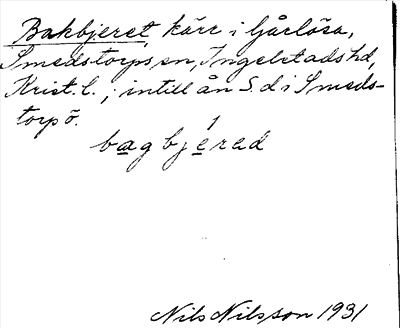 Bakbjeret, kärr i Gårlösa,
Smedstorps sn, Ingelstads hd,
Krist. l.; intill ån S. d i Smeds-
torp ö.
1
bagbjerad
Nils Nilsson 1931